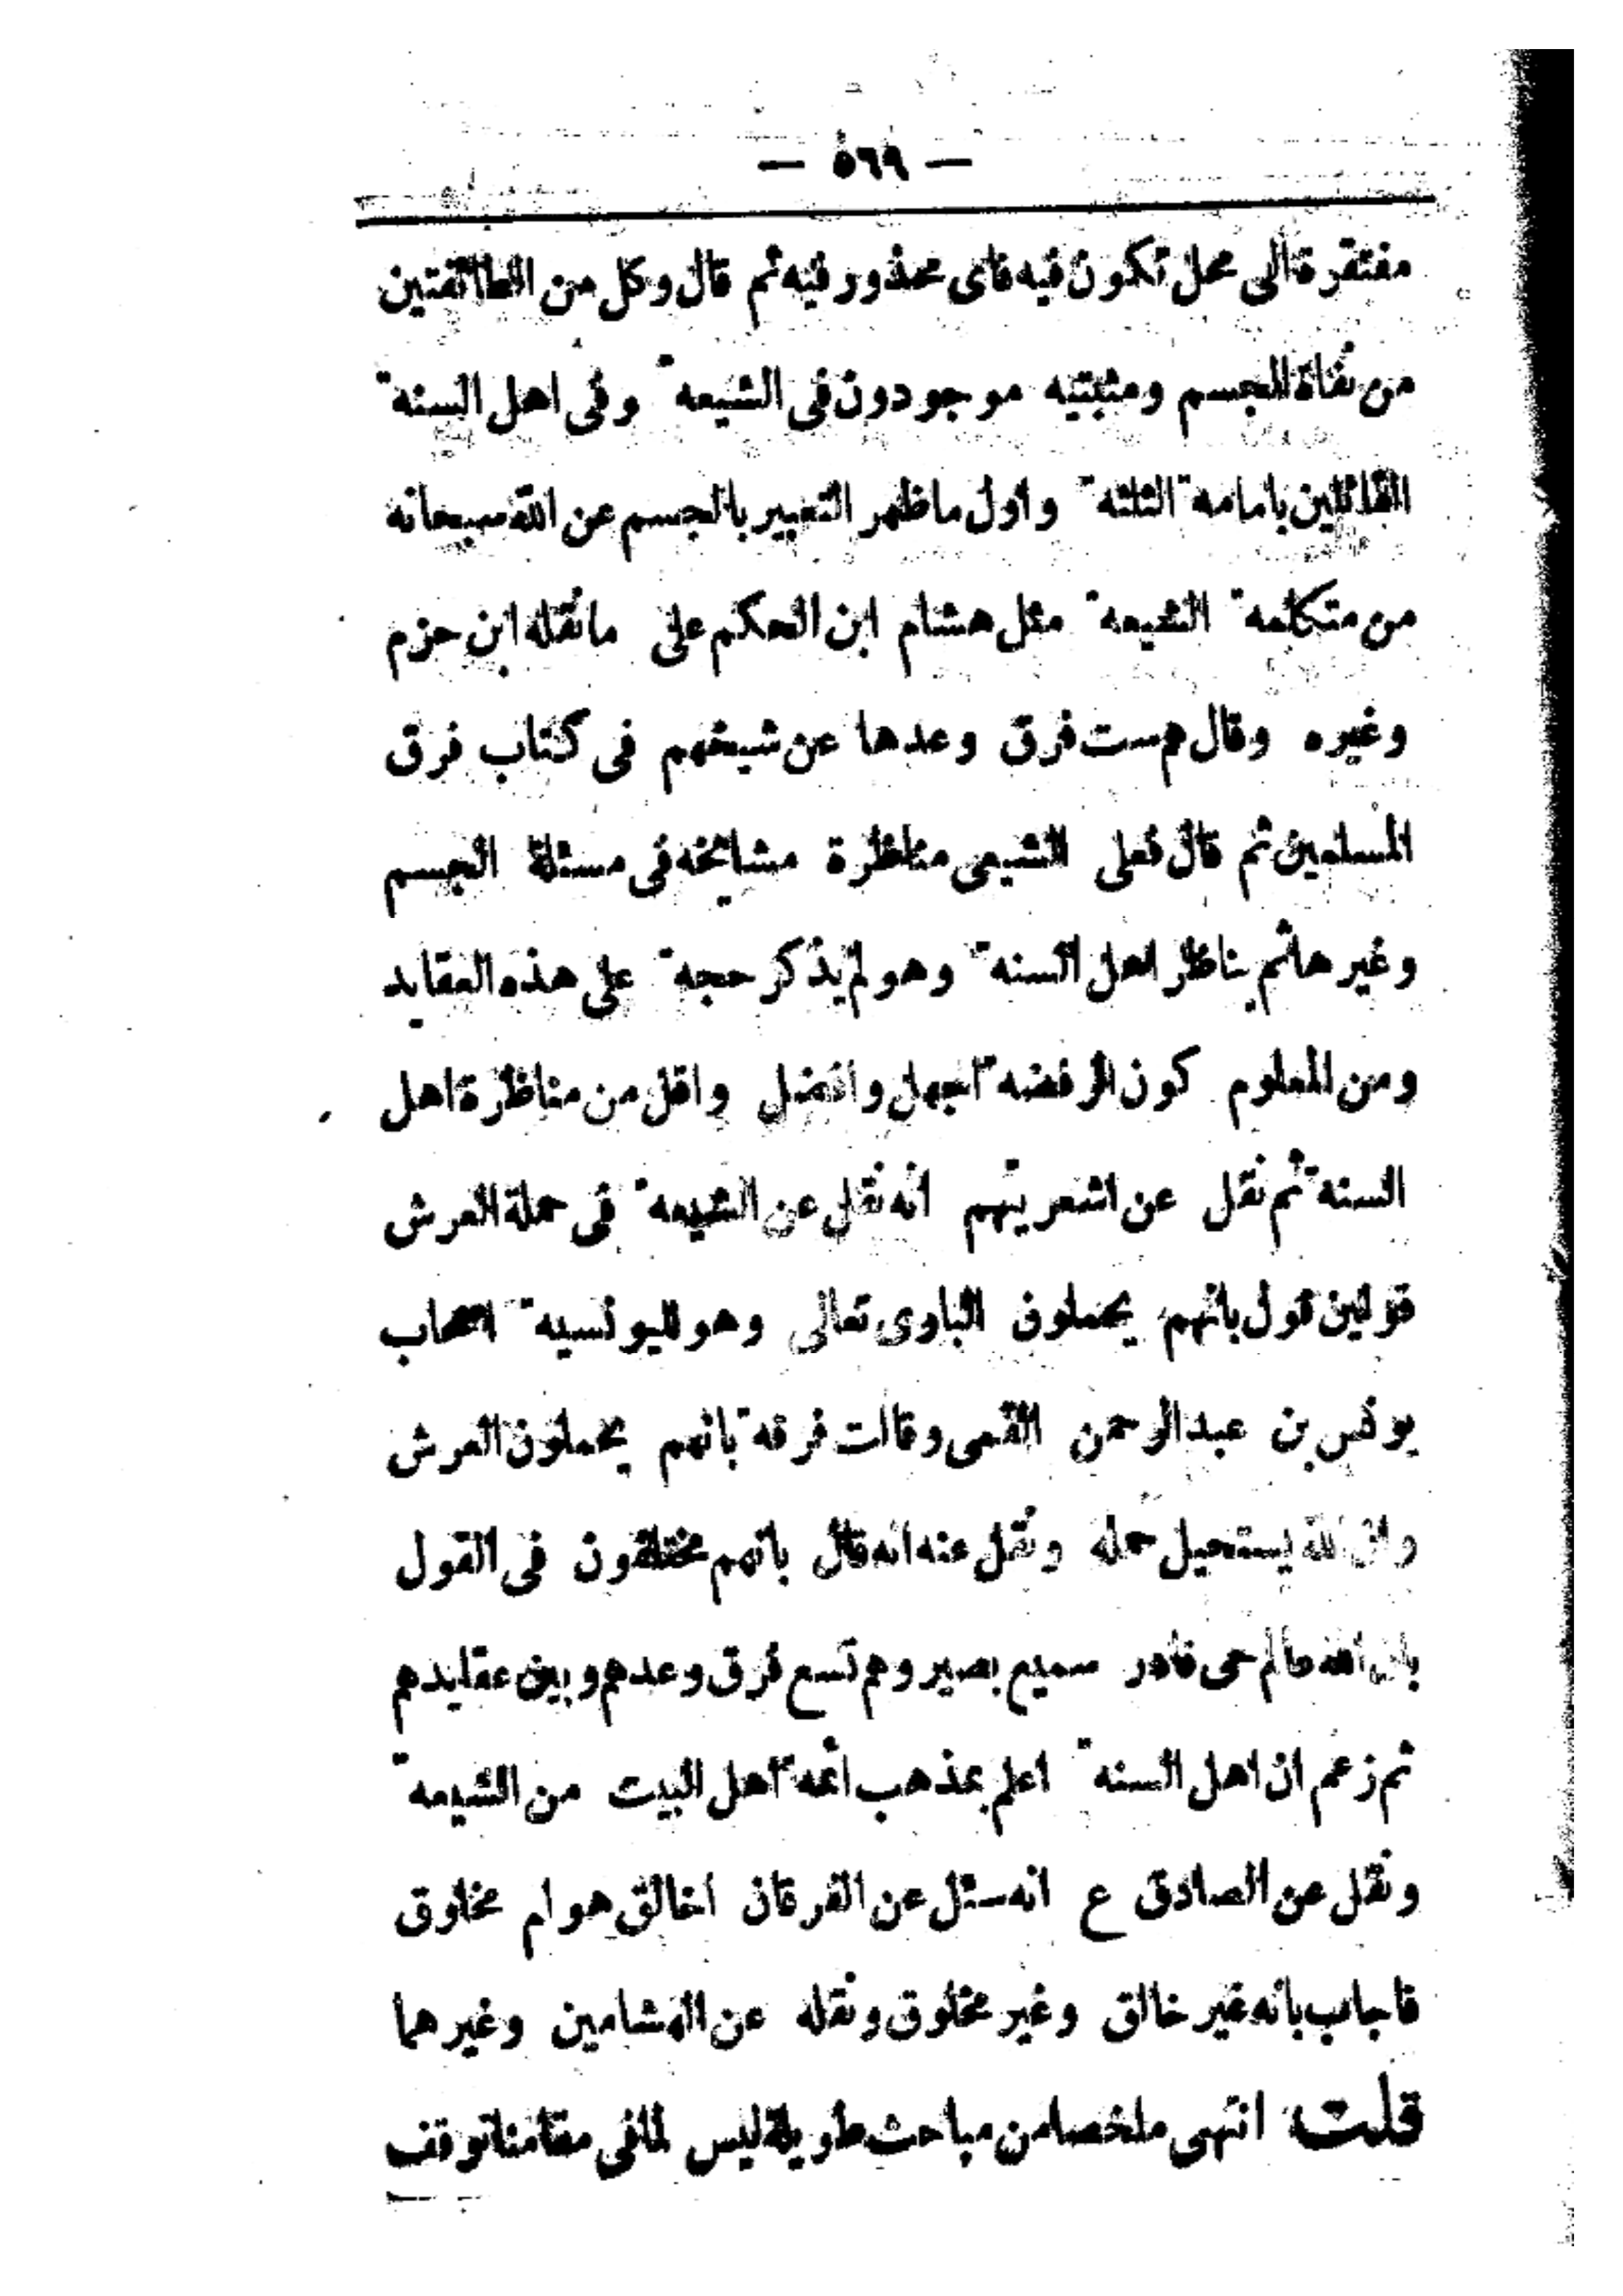 — ٥٦٩ —
مفتقرة الى محل تكون فيه فاى محذور فيه ثم قال وكل من الطائفتين
من نفاة الجسم ومثبتيه موجودون فى الشيعه ّ وفى اهل السنه ّ
القائلين بامامه ّ الثلثه ّ واول ما ظهر التعبير بالجسم عن الله سبحانه
من متكلمه ّ الشيعه ّ مثل هشام ابن الحكم على ما نقله ابن حزم
وغيره وقال هم ست فرق وعدها عن شيخهم فى كتاب فرق
المسلمين ثم قال فعلى الشيعى مناظرة مشائخه فى مسئلة الجسم
وغيرها ثم يناظر اهل السنه ّ وهو لم يذكر حجه ّ على هذه العقايد
ومن المعلوم كون الرفضه ّ اجهل واضل واقل من مناظرة اهل
السنه ّ ثم نقل عن اشعريتهم انه نقل عن الشيعه ّ فى حملة العرش
قولين قول بانهم يحملون البارى تعالى وهو لليونسيه ّ اصحاب
يونس بن عبدالرحمن القمى وقالت فرقه ّ بانهم يحملون العرش
وان الله يستحيل حمله ونقل عنه انه قال بانهم مختلفون فى القول
بان الله عالم حى قادر سميع بصير وهم تسع فرق وعدهم وبين عقايدهم
ثم زعم ان اهل السنه ّ اعلم بمذهب ائمه ّ اهل البيت من الشيعه ّ
ونقل عن الصادق ع انه سئل عن الفرقان اخالق هو ام مخلوق
فاجاب بانه غير خالق وغير مخلوق ونقله عن الهشامين وغيرهما
قلت انتهى ملخصا من مباحث طويلة ليس لما فى مقامنا توقف